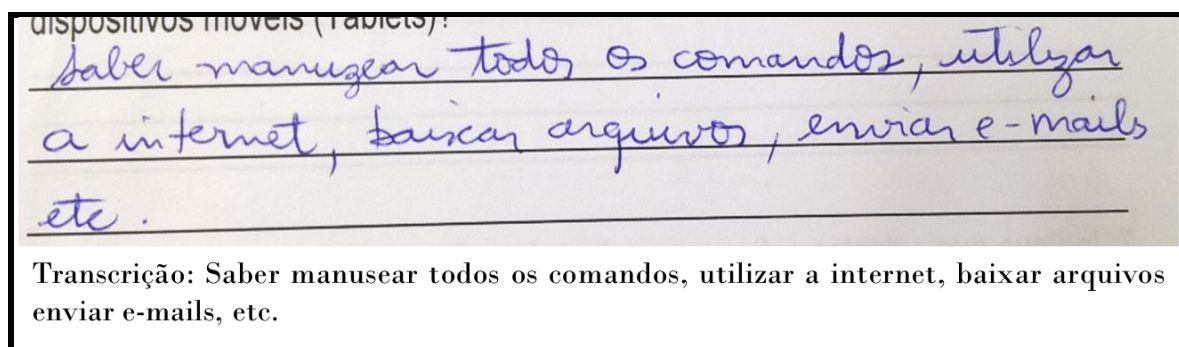 dispositivos móveis (Tablets)?
Saber manuzear todos os comandos, utilizar
a internet, baixar arquivos, enviar e-mails
etc.
Transcrição: Saber manusear todos os comandos, utilizar a internet, baixar arquivos
enviar e-mails, etc.